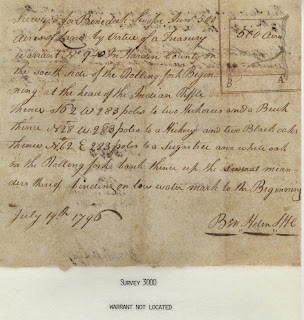 Surveyed for Benedick Swope Junr 500
Acres of Land by Virtue of a Treasury
Warrant No In Hardin County on
the south side of the Rolling fork Begin-
ning at the head of the Indian Riffle
thence S62 W 283 poles to two Hickories and a Beech
thence N28 W 283 poles to a Hickory and two Black oaks
thence N62 E 283 poles to a Sugartree and white oak
on the Rolling forks bank thence up the several mean-
ders thereof Binding on low water mark to the Beginning
July 19th 1796
Ben Helm
500 Acres
B A
SURVEY 3000
WARRANT NOT LOCATED